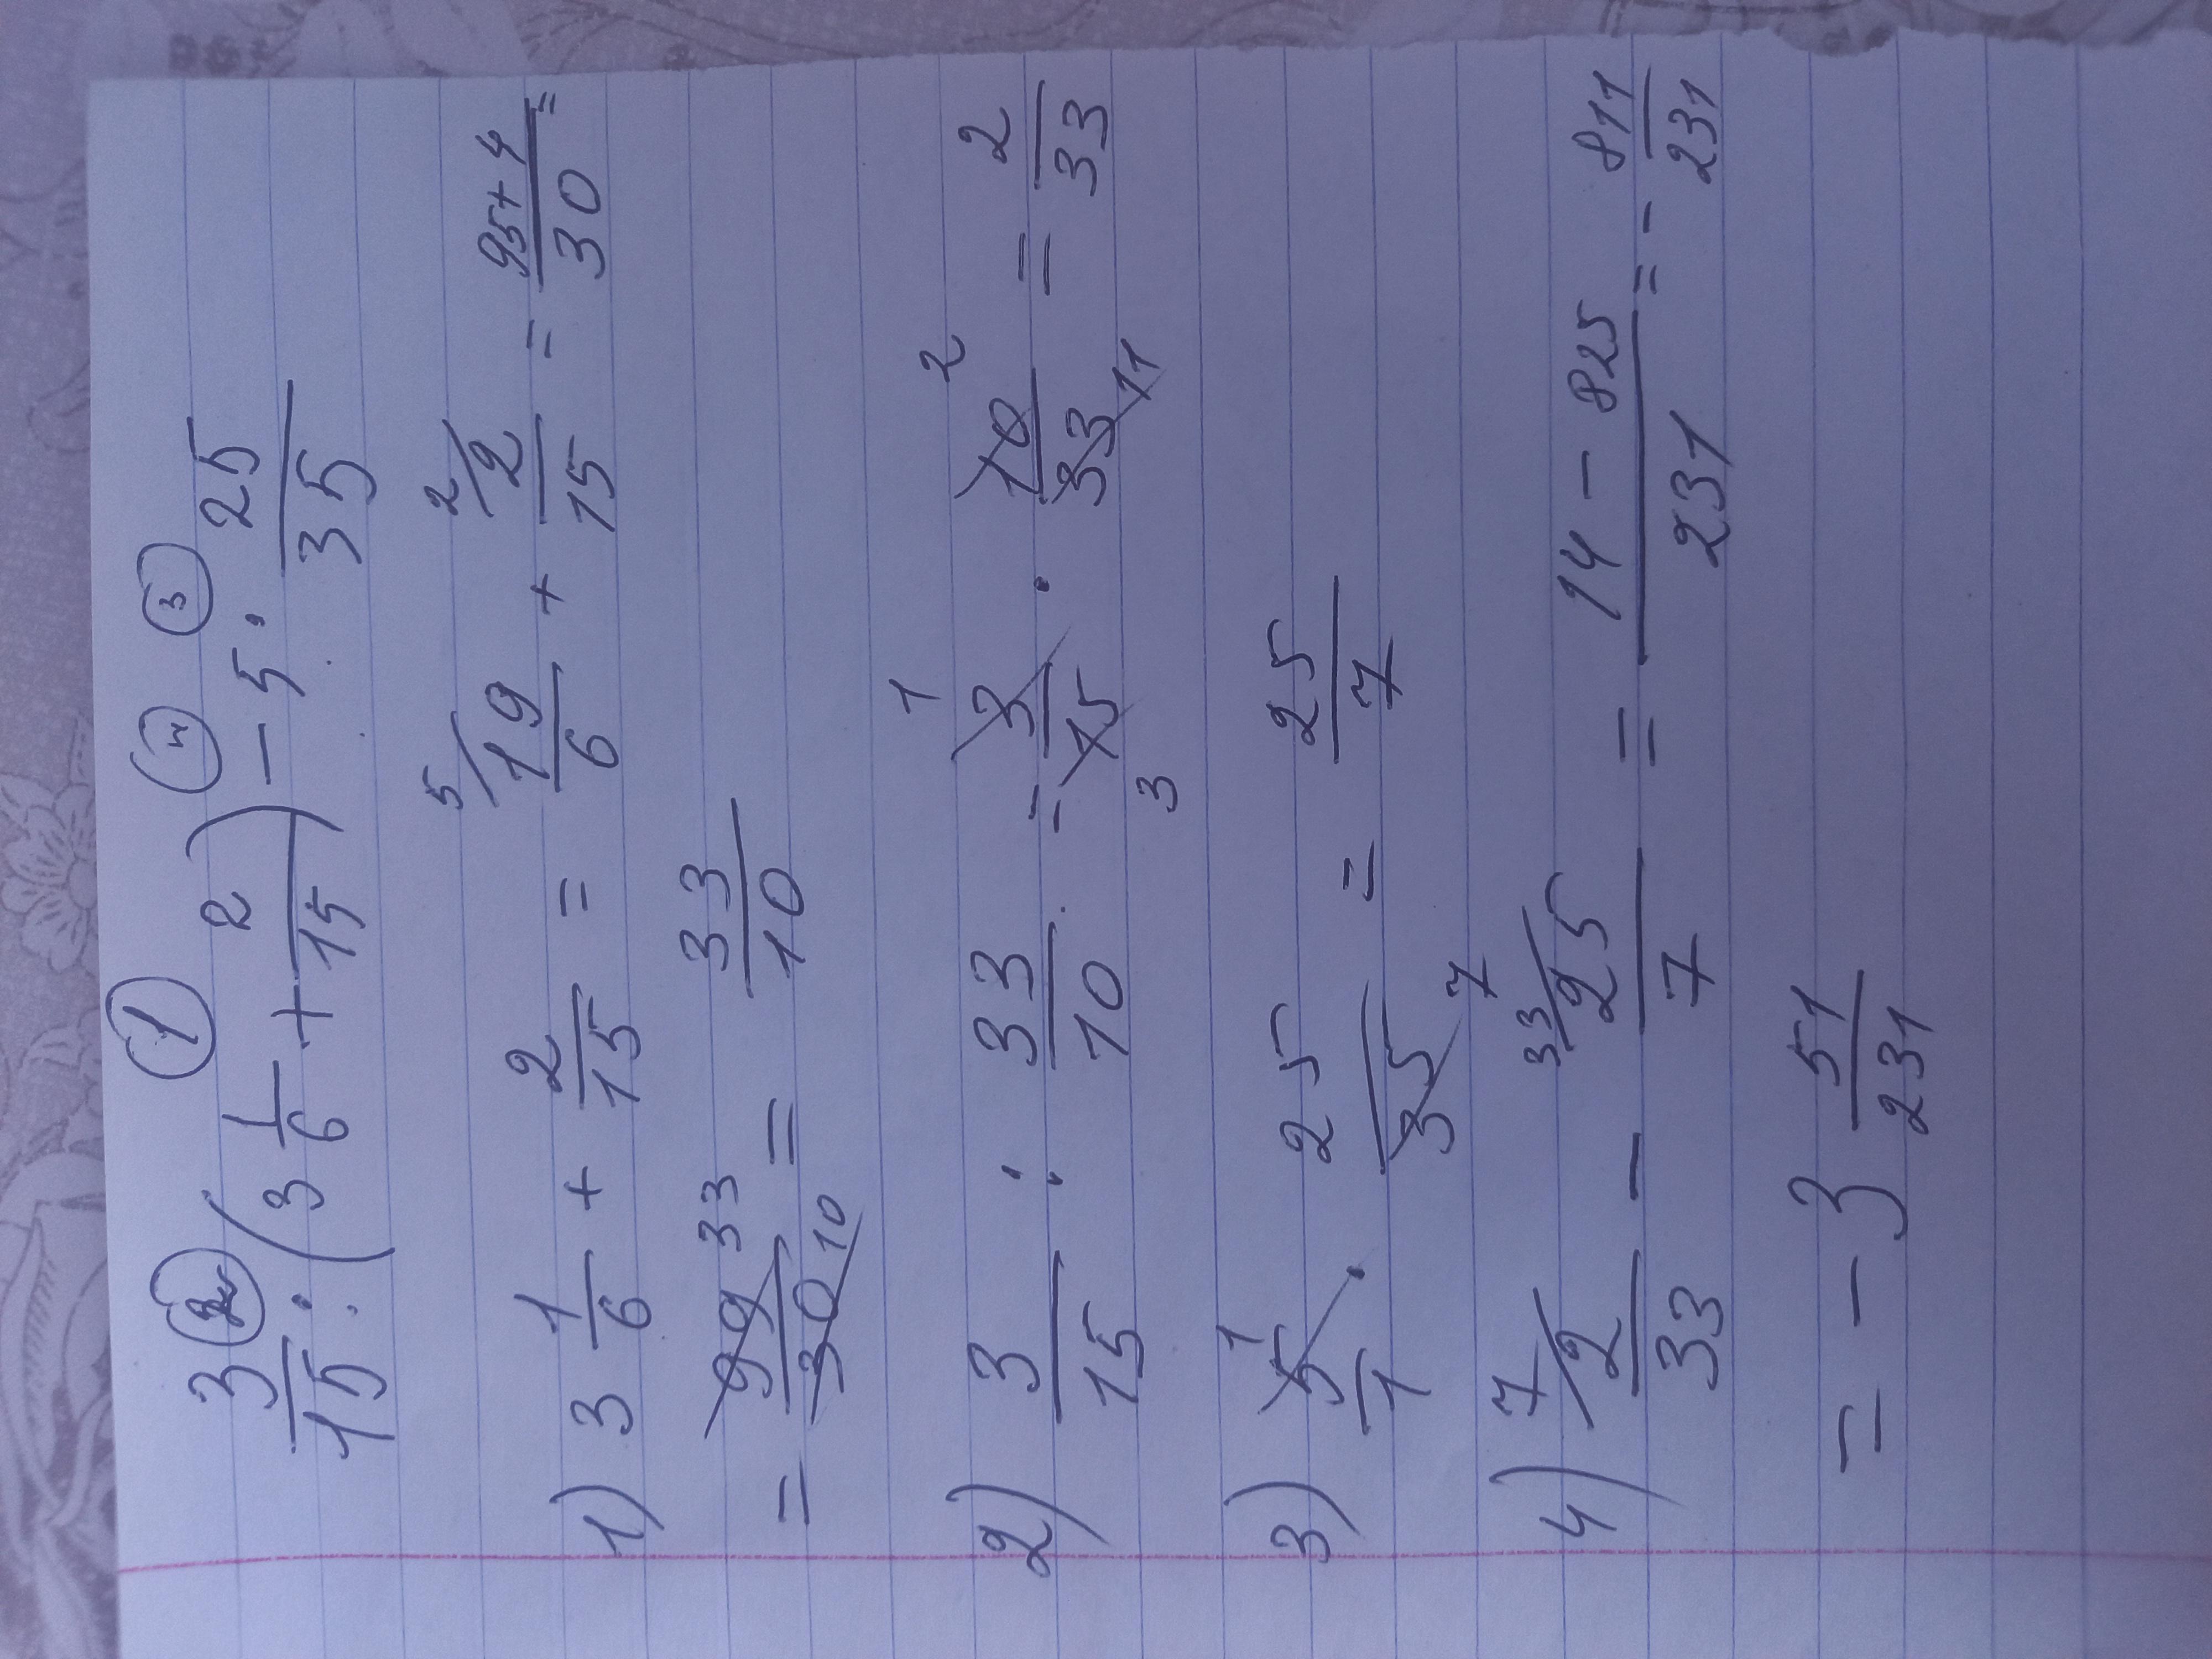 ① ④ ③
3/15 ② : (3 1/6 + 2/15) - 5 · 25/35
1) 3 1/6 + 2/15 = 5/ 19/6 + 2/ 2/15 = 95+4/30 =
= 99/30 33 10 = 33/10
2) 3/15 : 33/10 = 3/15 1 3 · 10/33 2 11 = 2/33
3) 5/1 1 · 25/35 7 = 25/7
4) 7/ 2/33 - 33/ 25/7 = 14 - 825/231 = - 811/231
= - 3 51/231